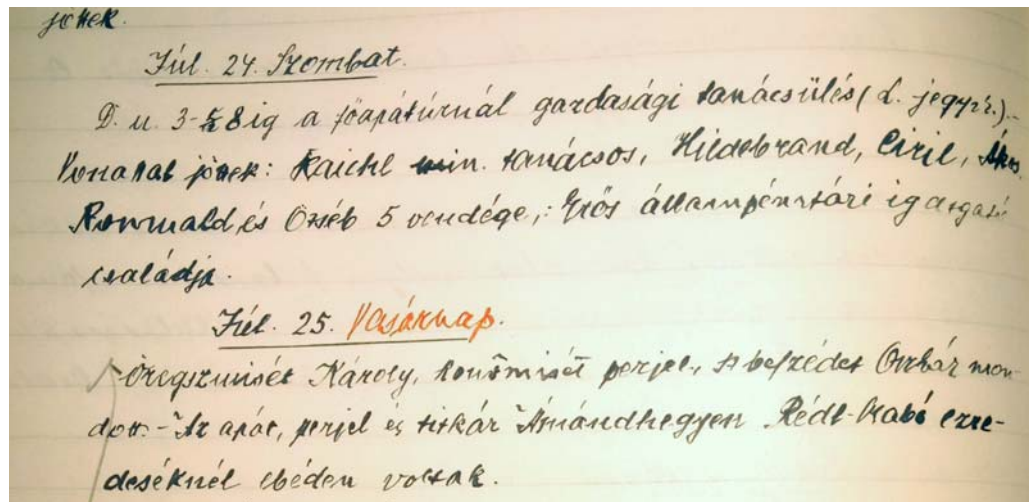 jöttek.
Júl. 24. Szombat.
D. u. 3-½8ig a főapátúrnál gazdasági tanácsülés (l. jegyz.).-
Vonattal jöttek: Raichl min. tanácsos, Hildebrand, Ciril, Ákos
Romuald és Özséb 5 vendége,: Erős állampénztári igazgató
családja.
Júl. 25. Vasárnap.
Öregszmisét Károly, konvmisét perjel, sz beszédet Orbár mon-
dott.- Az apát, perjel és titkár Ámándhegyen Rédl-Szabó ezre-
deséknél ebéden voltak.